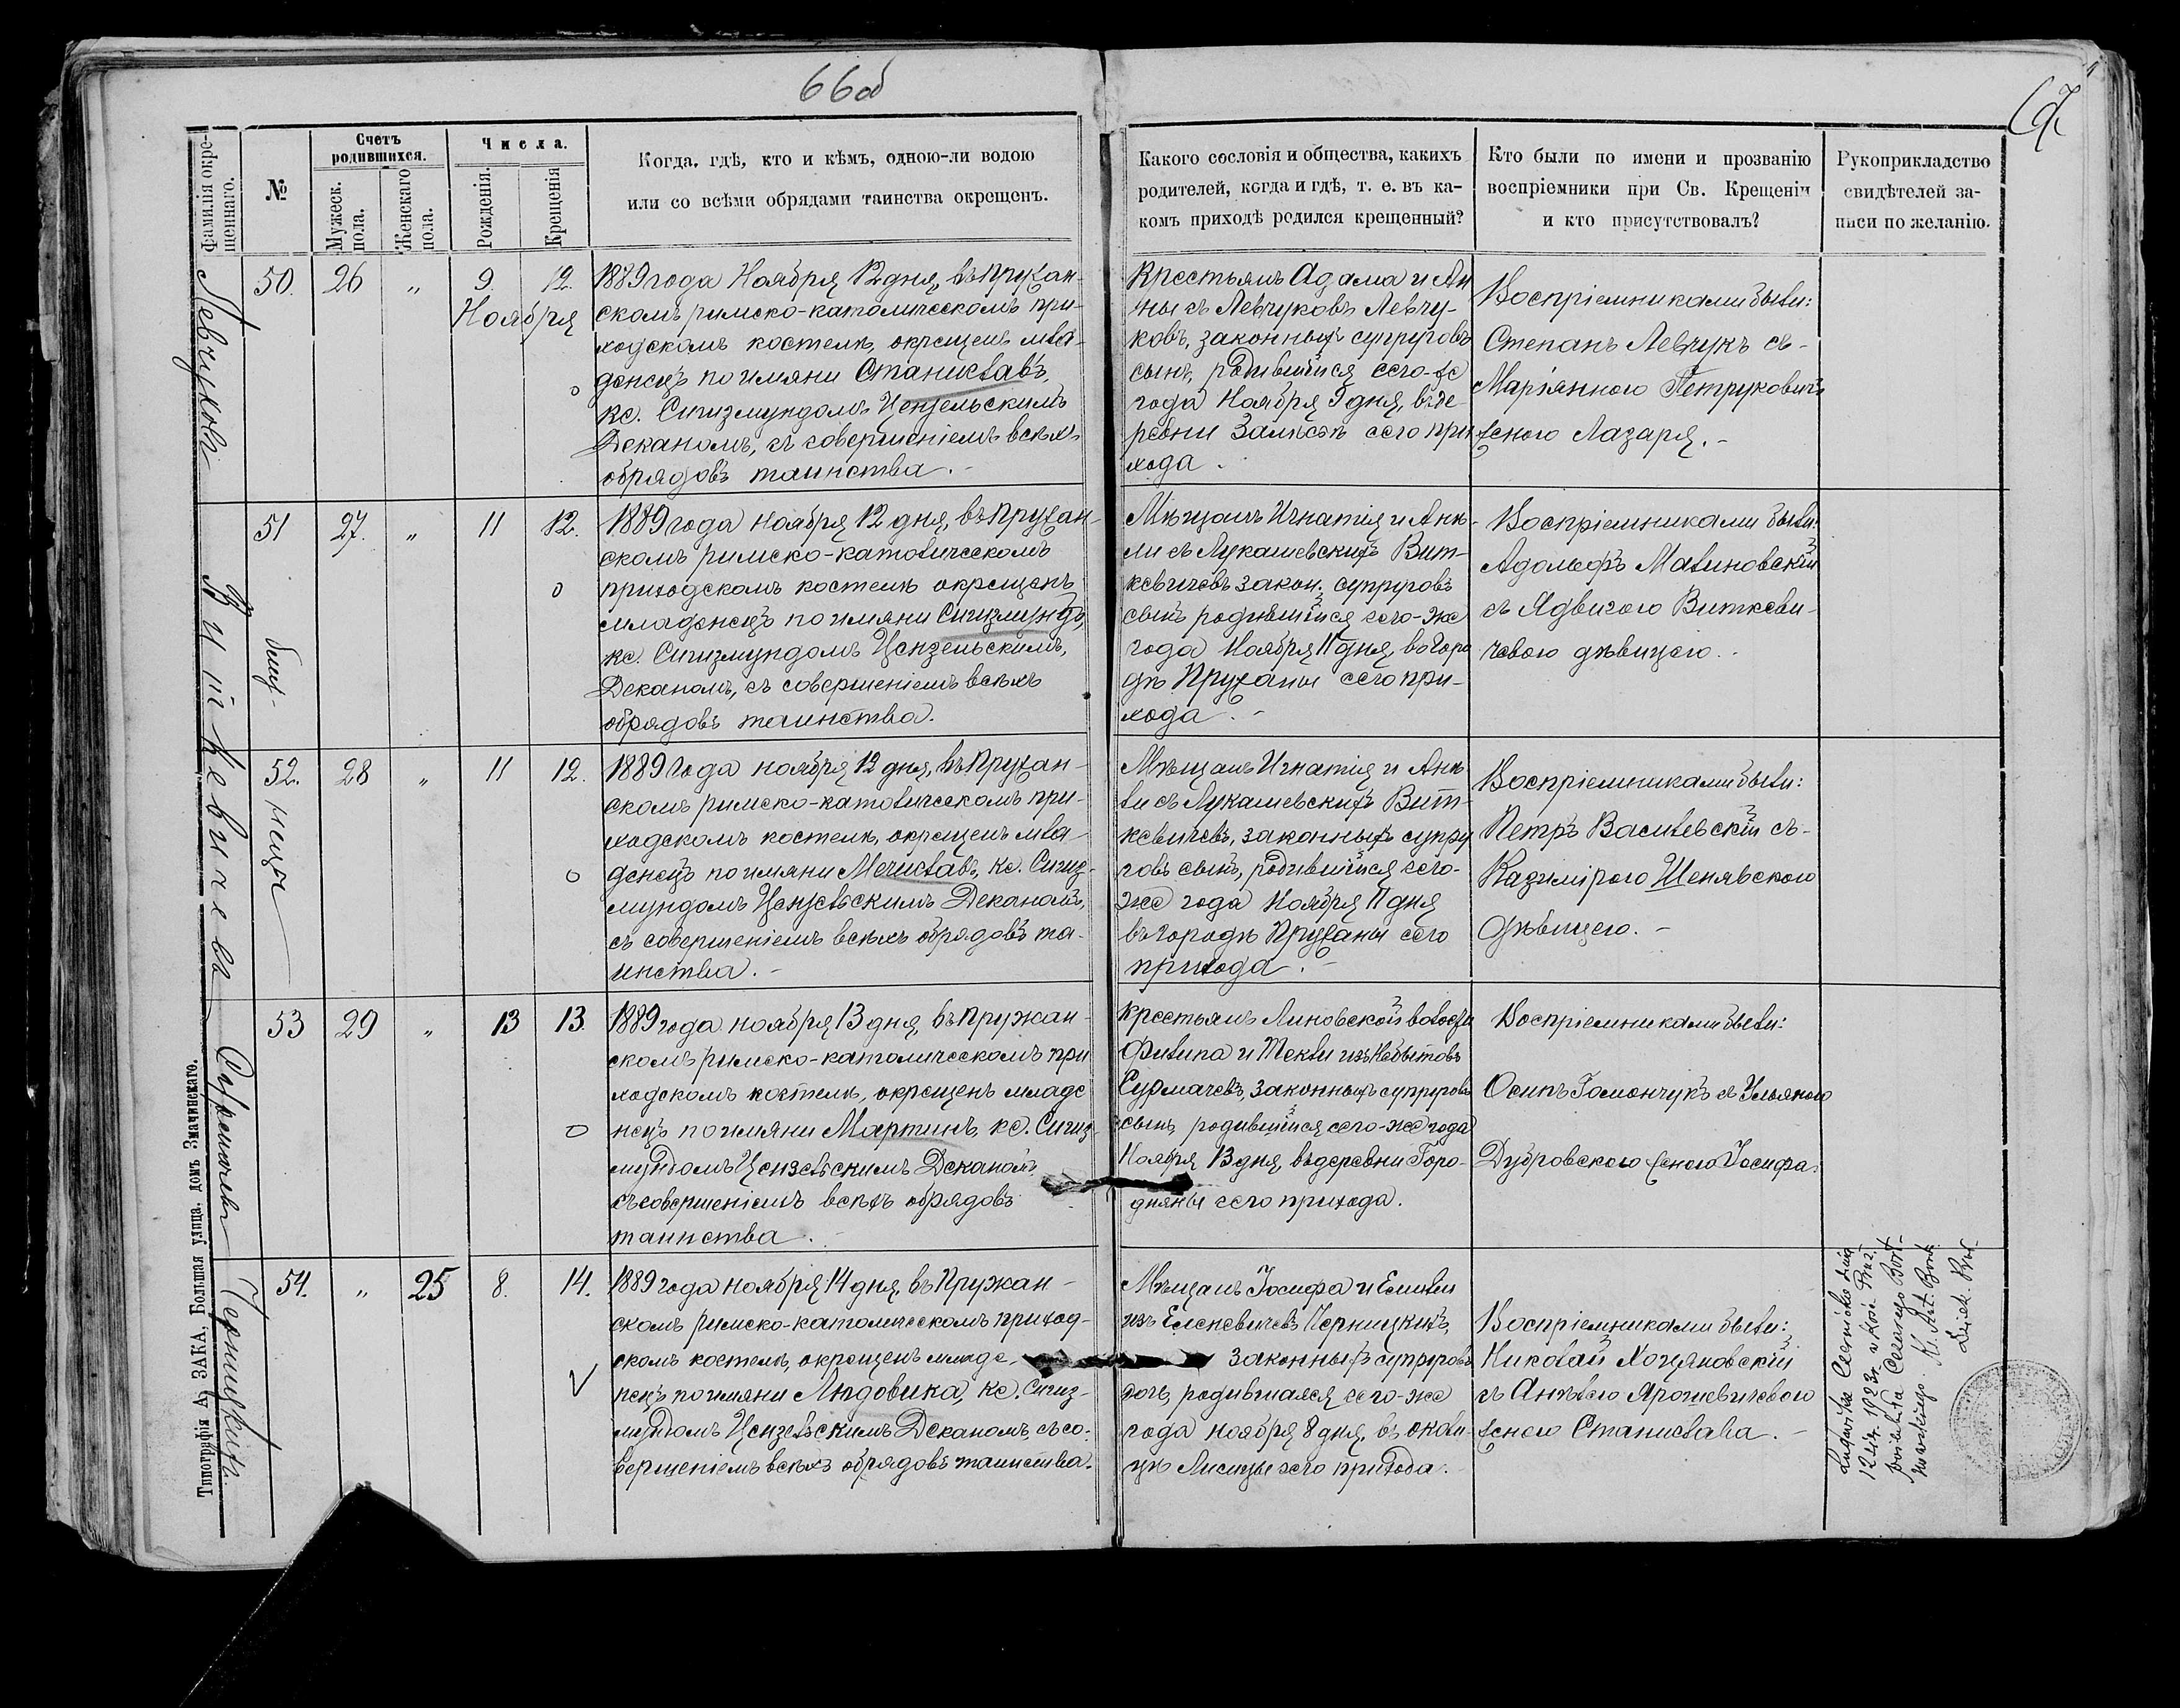 66об
67
Фамилія окре-
щеннаго.
№
Счетъ
родившихся.
Мужеск.
пола.
Женскаго
пола.
Числа.
Рожденія.
Крещенія
Когда, гдѣ, кто и кѣмъ, одною-ли водою
или со всѣми обрядами таинства окрещенъ.
Какого сословія и общества, какихъ
родителей, когда и гдѣ, т. е. въ ка-
комъ приходѣ родился крещенный?
Кто были по имени и прозванію
воспріемники при Св. Крещеніи
и кто присутствовалъ?
Рукоприкладство
свидѣтелей за-
писи по желанію.
Левчуковъ
50. 26 „ 9. 12.
Ноября
1889 года Ноября 12 дня, въ Пружан-
скомъ римско-католическомъ при-
ходскомъ костелѣ, окрещенъ мла-
денецъ по имяни Станиславъ,
кс. Сигизмундомъ Цензельскимъ
Деканомъ, съ совершеніемъ всѣхъ
обрядовъ таинства.-
Крестьянъ Адама и Ан
ны съ Левчуковъ Левчу-
ковъ, законныхъ супруговъ
сынъ, родившійся сего-же
года Ноября 9 дня, въ де-
ревни Залѣсье сего при
хода.
Воспріемниками были:
Степанъ Левчукъ съ-
Марьянною Петруковичъ
женою Лазаря.-
Виткевичевъ
близ-
нецы
51 27. „ 11 12.
1889 года ноября 12 дня, въ Пружан-
скомъ римско-католическомъ
приходскомъ костелѣ окрещенъ
младенецъ по имяни Сигизмундъ,
кс. Сигизмундомъ Цензельскимъ,
Деканомъ, съ совершеніемъ всѣхъ
обрядовъ таинства.
Мѣщанъ Игнатія и Анѣ-
ли съ Лукашевскихъ Вит-
кевичевъ закон. супруговъ
сынъ родившійся сего-же
года Ноября 11 дня, въ горо
дѣ Пружаны сего при-
хода.-
Воспріемниками были:
Адольфъ Малиновскій
съ Ядвигою Виткеви-
чевою дѣвицею.-
52. 28 „ 11 12.
1889 года ноября 12 дня, въ Пружан-
скомъ римско-католическомъ при-
ходскомъ костелѣ, окрещенъ мла-
денецъ по имяни Мечиславъ, кс. Сигиз-
мундомъ Цензельскимъ Деканомъ,
съ совершеніемъ всѣхъ обрядовъ та-
инства.-
Мѣщанъ Игнатія и Анѣ
ли съ Лукашевскихъ Вит-
кевичевъ, законныхъ супру
говъ сынъ, родившійся сего-
же года Ноября 11 дня
въ городѣ Пружаны сего
прихода.-
Воспріемниками были:
Петръ Василевскій съ-
Казимірою Шенявского
дѣвицею.-
Сурмачевъ
53 29 „ 13 13.
1889 года ноября 13 дня, въ Пружан-
скомъ римско-католическомъ при
ходскомъ костелѣ, окрещенъ младе
нецъ по имяни Мартинъ, кс. Сигиз-
мундомъ Цензельскимъ Деканомъ
съ совершеніемъ всѣхъ обрядовъ
таинства.-
Крестьянъ Линовской волости
Филипа и Текли изъ Небытовъ
Сурмачевъ, законныхъ супруговъ
сынъ, родившійся сего-же года
Ноября 13 дня, въ деревни Горо-
дняны сего прихода.
Воспріемниками были:
Осипъ Гомончукъ съ Ульяною
Дубровскою женою Іосифа.
Черницкихъ
54. „ 25 8. 14.
1889 года ноября 14 дня, въ Пружан-
скомъ римско-католическомъ приход-
скомъ костелѣ, окрещенъ младе-
нецъ по имяни Людовика, кс. Сигиз-
мундомъ Цензельскимъ Деканомъ, съ со-
вершеніемъ всѣхъ обрядовъ таинства.
Мѣщанъ Іосифа и Емиліи
изъ Еленевичевъ Черницкихъ,
законныхъ супруговъ
дочь, родившаяся сего-же
года ноября 8 дня, въ околи-
цѣ Лисицы сего прихода.
Воспріемниками были:
Николай Хоцяновскій
съ Анѣлею Ярошевичевою
женою Станислава.-
Ludwika Czernicka dnia
1923r. w Kość. Pruż.
poślubiła Cezarego Bort-
nowskiego.
Типографія А. ЗАКА, Большая улица, домъ Змачинскаго.